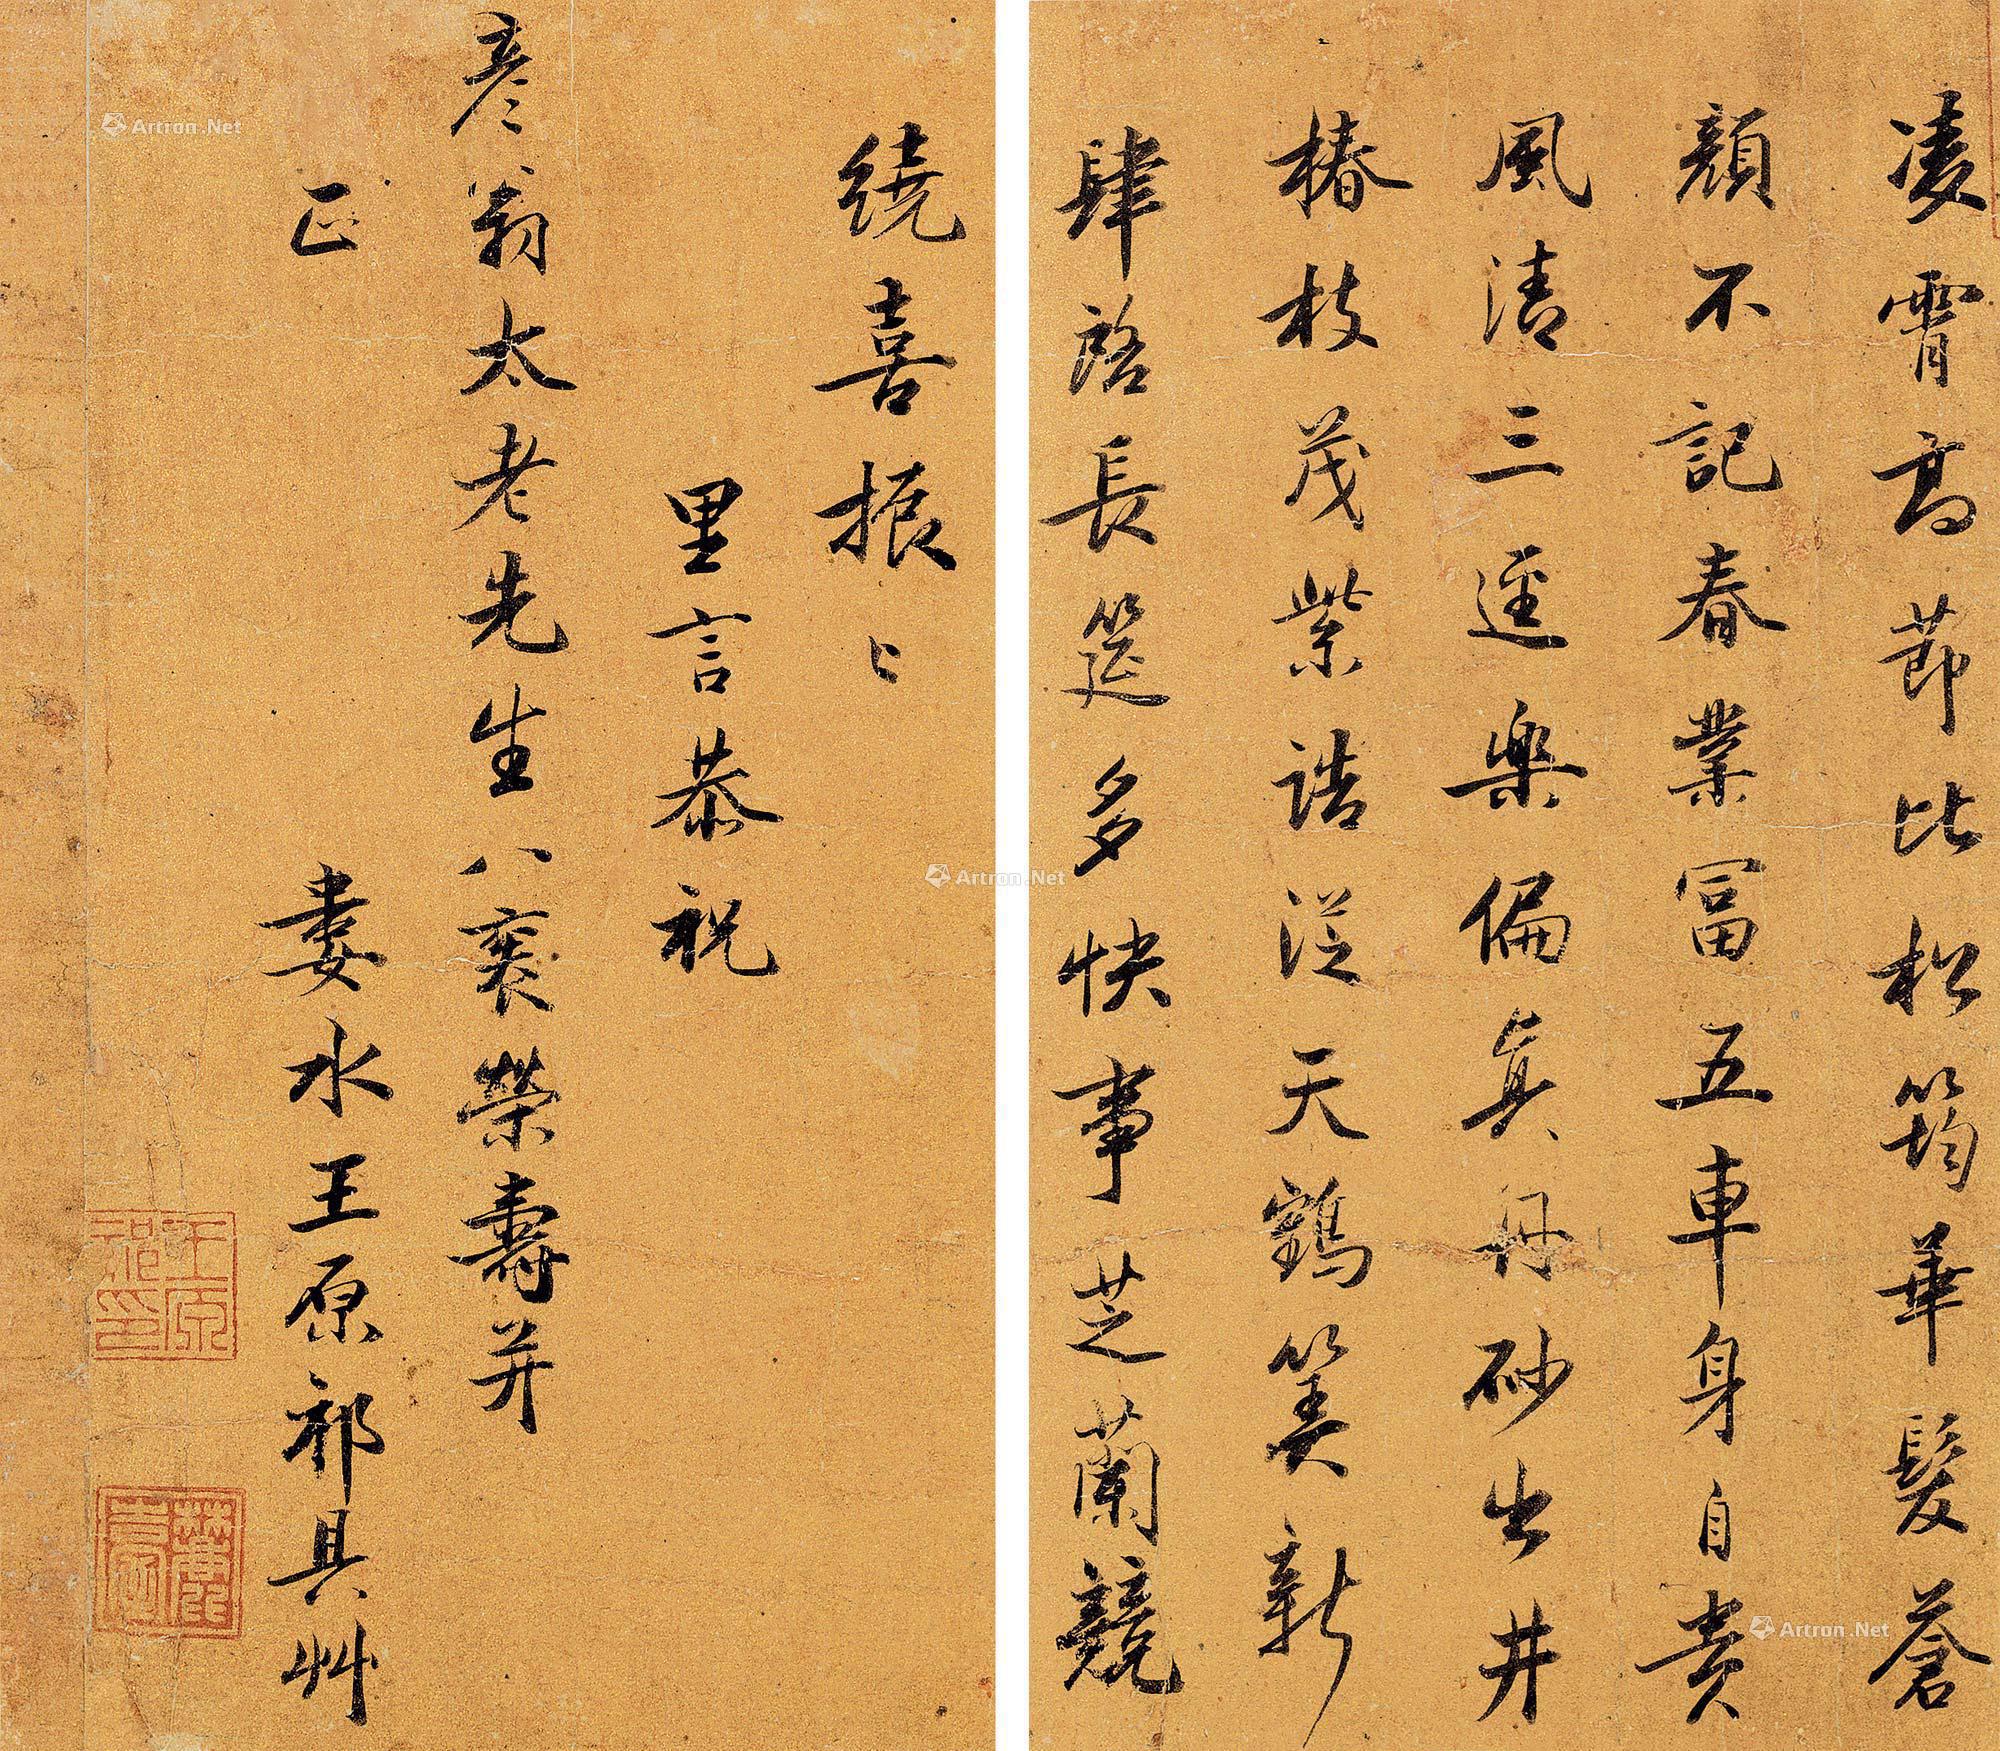 凌霄高節比松筠華髮蒼
顏不記春業富五車身自貴
風清三逕樂偏真丹砂出井
椿枝茂紫誥從天鶴筭新
肆啓長筵多快事芝蘭競
繞喜振〻
里言恭祝
彥翁太老先生八袠榮壽并
正
婁水王原祁具艸
王原祁印
麓臺
Artron.Net
Artron.Net
Artron.Net